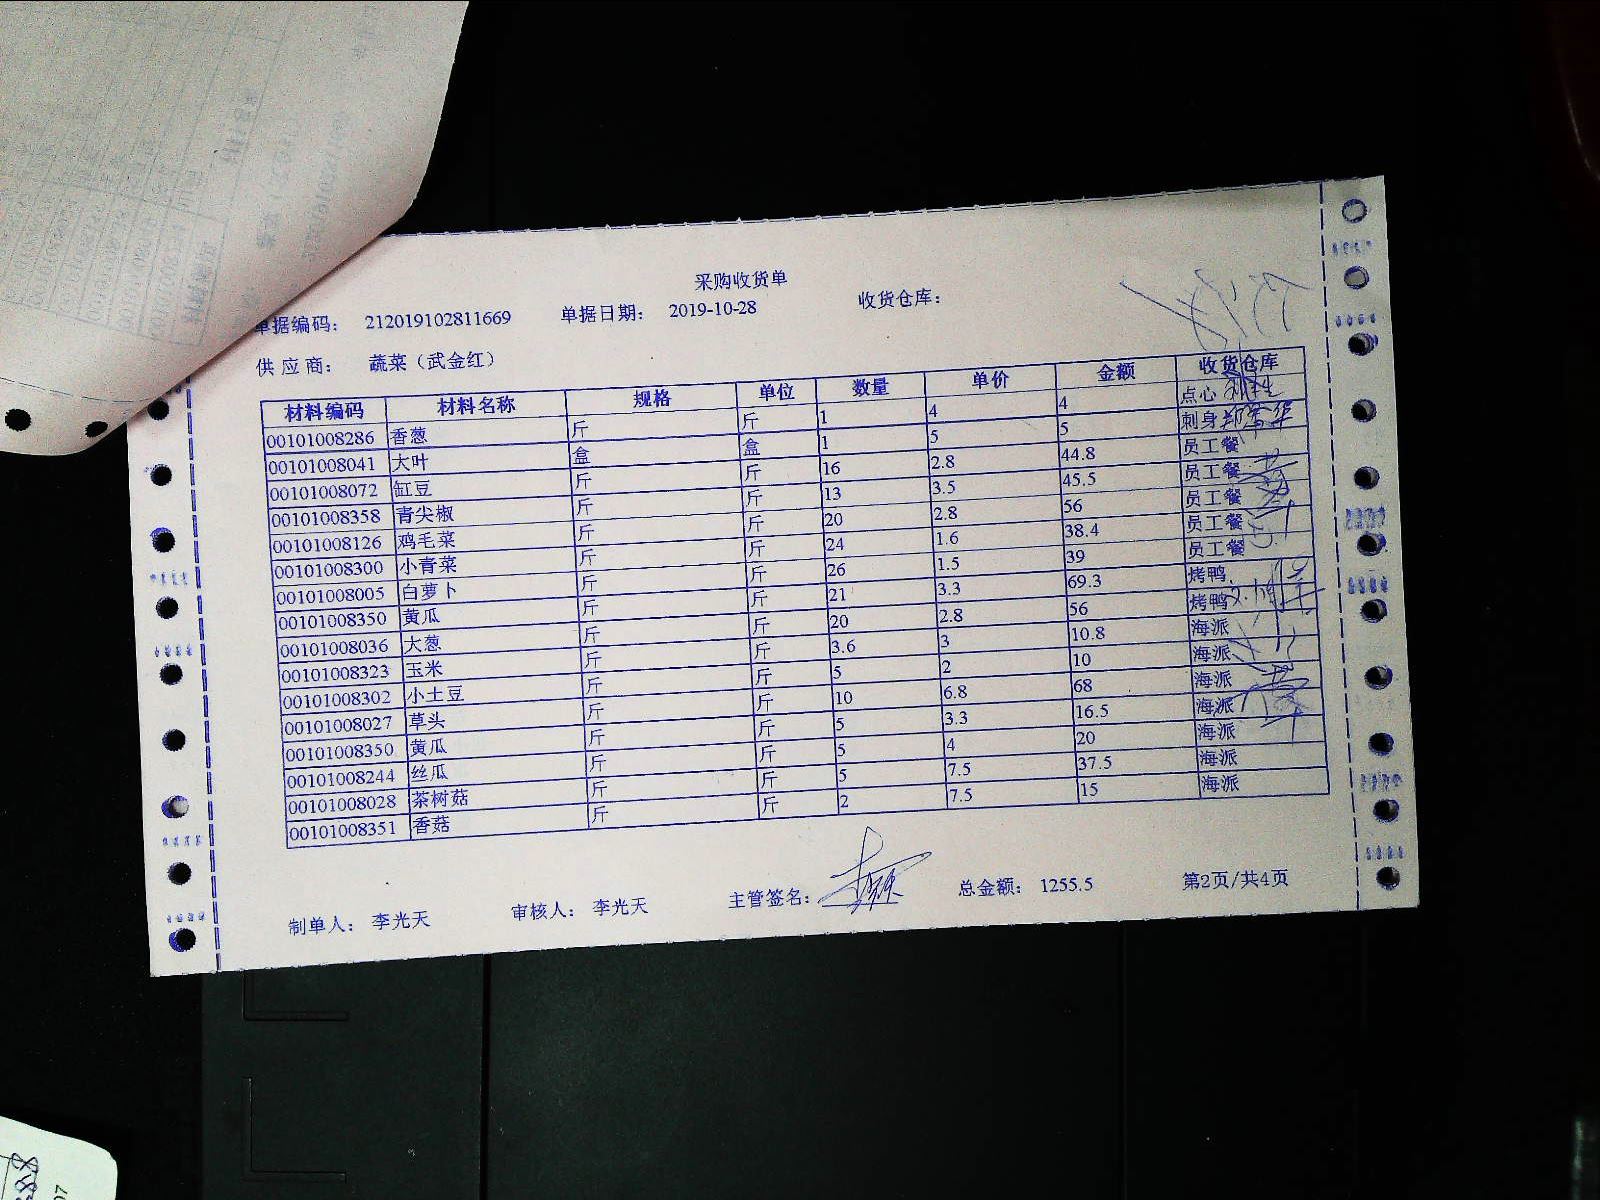 采购收货单
单据编码： 212019102811669 单据日期： 2019-10-28 收货仓库：
供应商： 蔬菜（武金红）
材料编码 材料名称 规格 单位 数量 单价 金额 收货仓库
00101008286 香葱 斤 斤 1 4 4 点心
00101008041 大叶 盒 盒 1 5 5 刺身
00101008072 缸豆 斤 斤 16 2.8 44.8 员工餐
00101008358 青尖椒 斤 斤 13 3.5 45.5 员工餐
00101008126 鸡毛菜 斤 斤 20 2.8 56 员工餐
00101008300 小青菜 斤 斤 24 1.6 38.4 员工餐
00101008005 白萝卜 斤 斤 26 1.5 39 员工餐
00101008350 黄瓜 斤 斤 21 3.3 69.3 烤鸭
00101008036 大葱 斤 斤 20 2.8 56 烤鸭
00101008323 玉米 斤 斤 3.6 3 10.8 海派
00101008302 小土豆 斤 斤 5 2 10 海派
00101008027 草头 斤 斤 10 6.8 68 海派
00101008350 黄瓜 斤 斤 5 3.3 16.5 海派
00101008244 丝瓜 斤 斤 5 4 20 海派
00101008028 茶树菇 斤 斤 5 7.5 37.5 海派
00101008351 香菇 斤 斤 2 7.5 15 海派
制单人： 李光天 审核人： 李光天 主管签名： 总金额： 1255.5 第2页/共4页